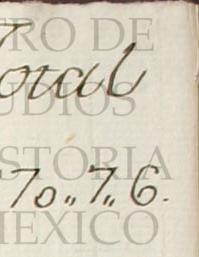 TRO DE
Total
UDIOS
ISTORIA
70,,7,,6.
MEXICO